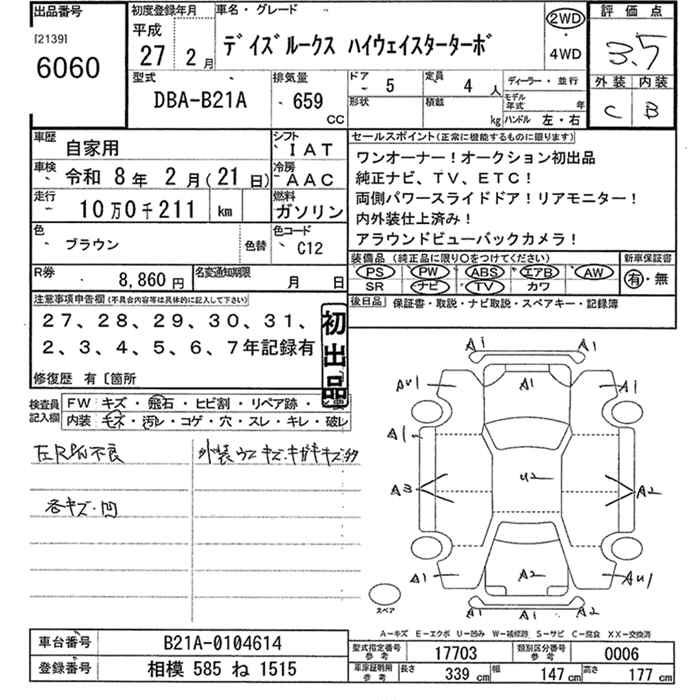 出品番号
[2139]
6060
初度登録年月
平成
27 年 2 月
車名・グレード
デイズルークス ハイウェイスターターボ
2WD
・
4WD
評価点
3.5
外装 内装
C B
型式
DBA-B21A
排気量
659 CC
ドア 5
形状
定員 4 人
積載 kg
ディーラー・並行
モデル年式 年
ハンドル 左・右
車歴
自家用
シフト
IAT
車検
令和 8 年 2 月 (21 日)
冷房
AAC
走行
10万0千211 km
燃料
ガソリン
色
ブラウン
色替
色コード
C12
R券
8,860 円
名変通知期限
月 日
セールスポイント(正常に機能するものに限ります)
ワンオーナー!オークション初出品
純正ナビ、TV、ETC!
両側パワースライドドア!リアモニター!
内外装仕上済み!
アラウンドビューバックカメラ!
装備品 (純正品に限り〇をつけてください)
PS PW ABS エアB AW
SR ナビ TV カワ
新車保証書
有・無
後日品 保証書・取説・ナビ取説・スペアキー・記録簿
注意事項申告欄(不具合内容等は具体的に記入して下さい)
27、28、29、30、31、
2、3、4、5、6、7年記録有
初出品
修復歴 有〔箇所
検査員記入欄
FW キズ・飛石・ヒビ割・リペア跡・
内装 モネ・汚レ・コゲ・穴・スレ・キレ・破レ
各キズ・凹
A1 A1
AU1 A1 A1
A1
A3 U2 A2
A1 A2 AU1
A1 A1
スペア
A-キズ E-エクボ U-凹み W-補修跡 S-サビ C-腐食 XX-交換済
車台番号 B21A-0104614
登録番号 相模 585 ね 1515
型式指定番号 参考 17703
類別区分番号 参考 0006
車庫証明用 参考 長さ 339 cm 幅 147 cm 高さ 177 cm